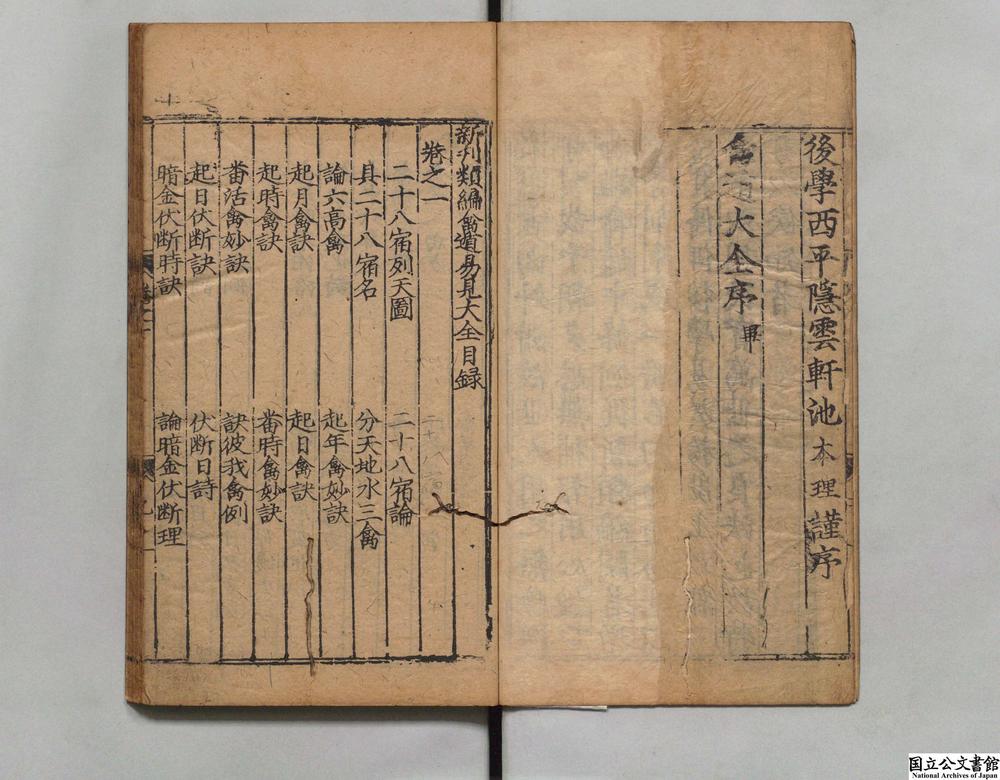 後學西平隱雲軒池本理謹序
禽遁大全序畢
新刋類編禽遁易見大全目録
卷之一
二十八宿列天圖
二十八宿論
具二十八宿名
分天地水三禽
論六高禽
起年禽妙訣
起月禽訣
起日禽訣
起時禽訣
畨時禽妙訣
畨活禽妙訣
訣彼我禽例
起日伏断訣
伏断日詩
暗金伏断時訣
論暗金伏断理
国立公文書館
National Archives of Japan